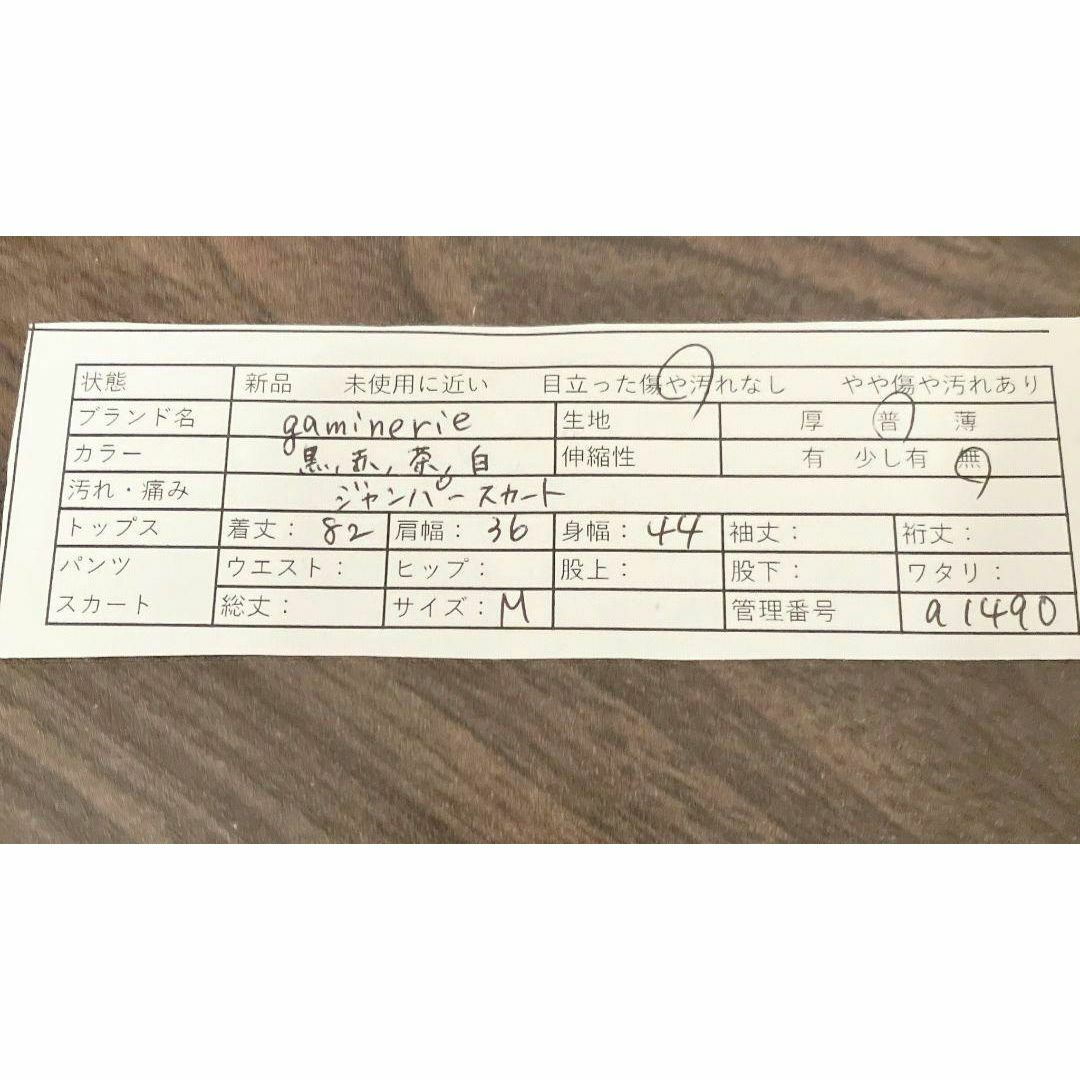 状態 新品 未使用に近い 目立った傷や汚れなし やや傷や汚れあり
ブランド名 gaminerie 生地 厚 普 薄
カラー 黒,赤,茶,白 伸縮性 有 少し有 無
汚れ・痛み ジャンパースカート
トップス 着丈: 82 肩幅: 36 身幅: 44 袖丈: 裄丈:
パンツ ウエスト: ヒップ: 股上: 股下: ワタリ:
スカート 総丈: サイズ: M 管理番号 a1490